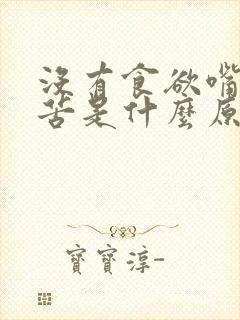 没有食欲嘴
苦是什麼原
寶寶淳-